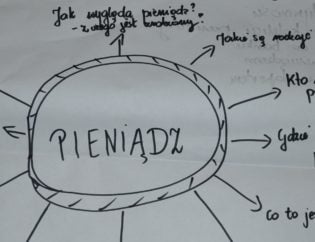 Jak wygląda pieniądz?
- z czego jest zrobiony?
Jakie są rodzaje
Kto
P
Gdzie
PIENIĄDZ
Co to je